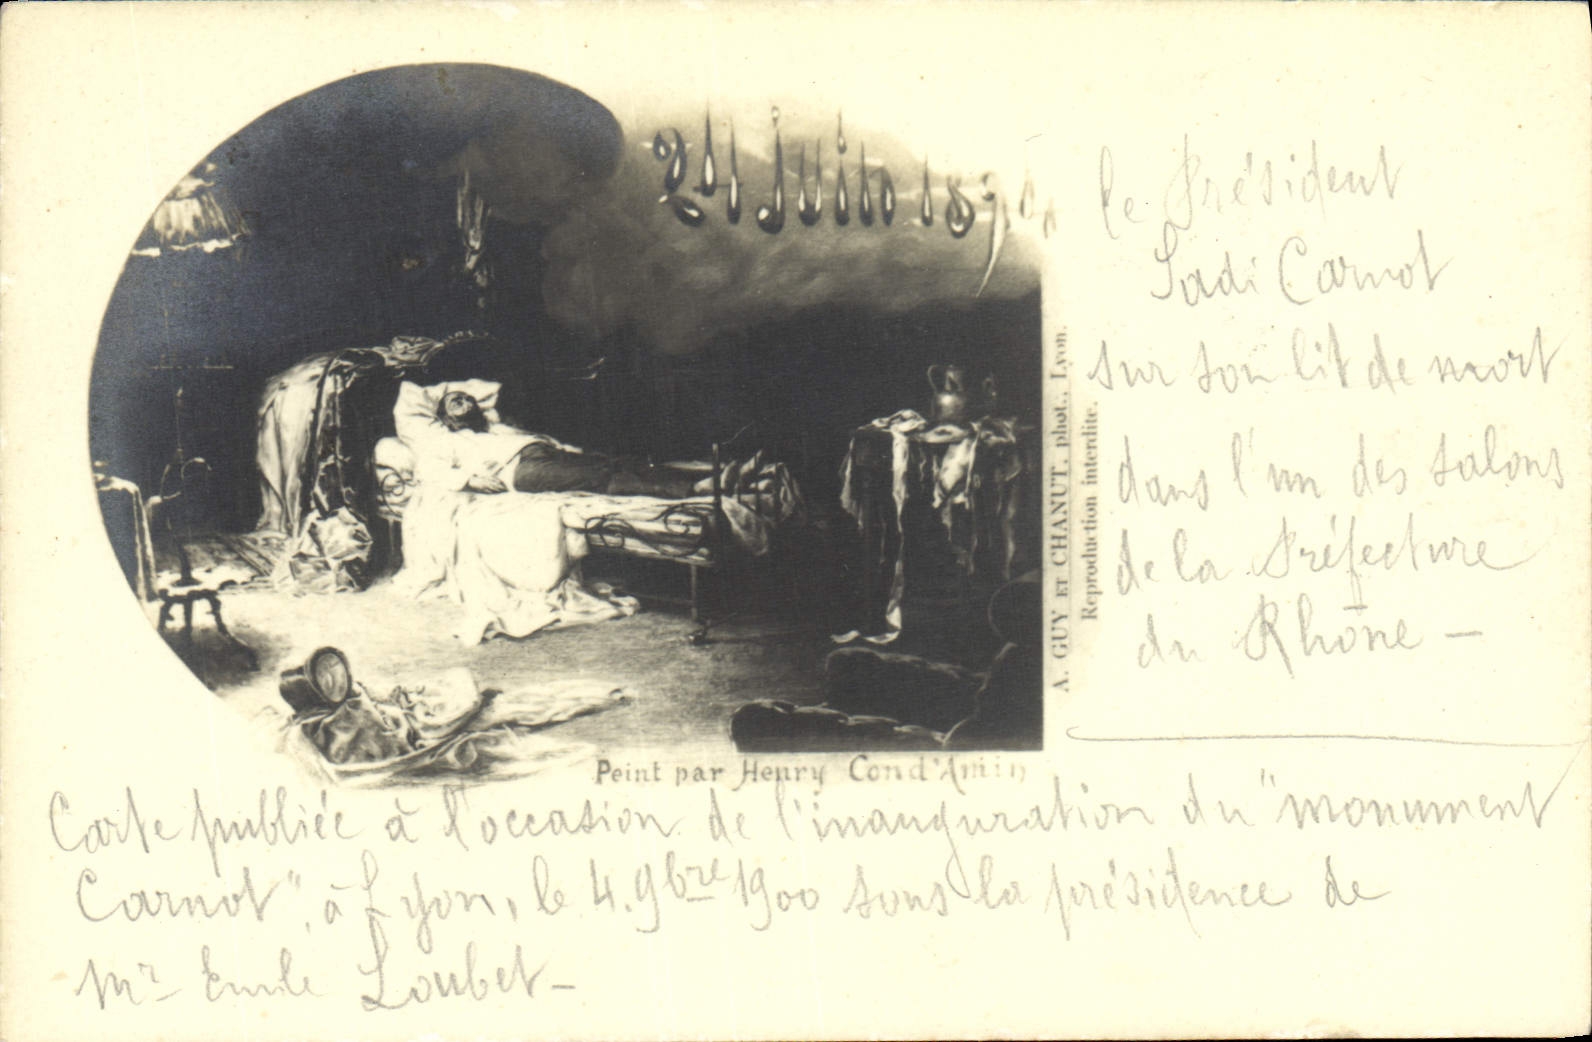 24 Juin 1894
le Président
Sadi Carnot
sur son lit de mort
dans l'un des salons
de la Préfecture
du Rhône —
A. GUY ET CHANUT, phot., Lyon.
Reproduction interdite.
Peint par Henry Cond'Amin
Carte publiée à l'occasion de l'inauguration du "monument
Carnot", à Lyon, le 4. 9bre 1900 sous la présidence de
Mr Emile Loubet —